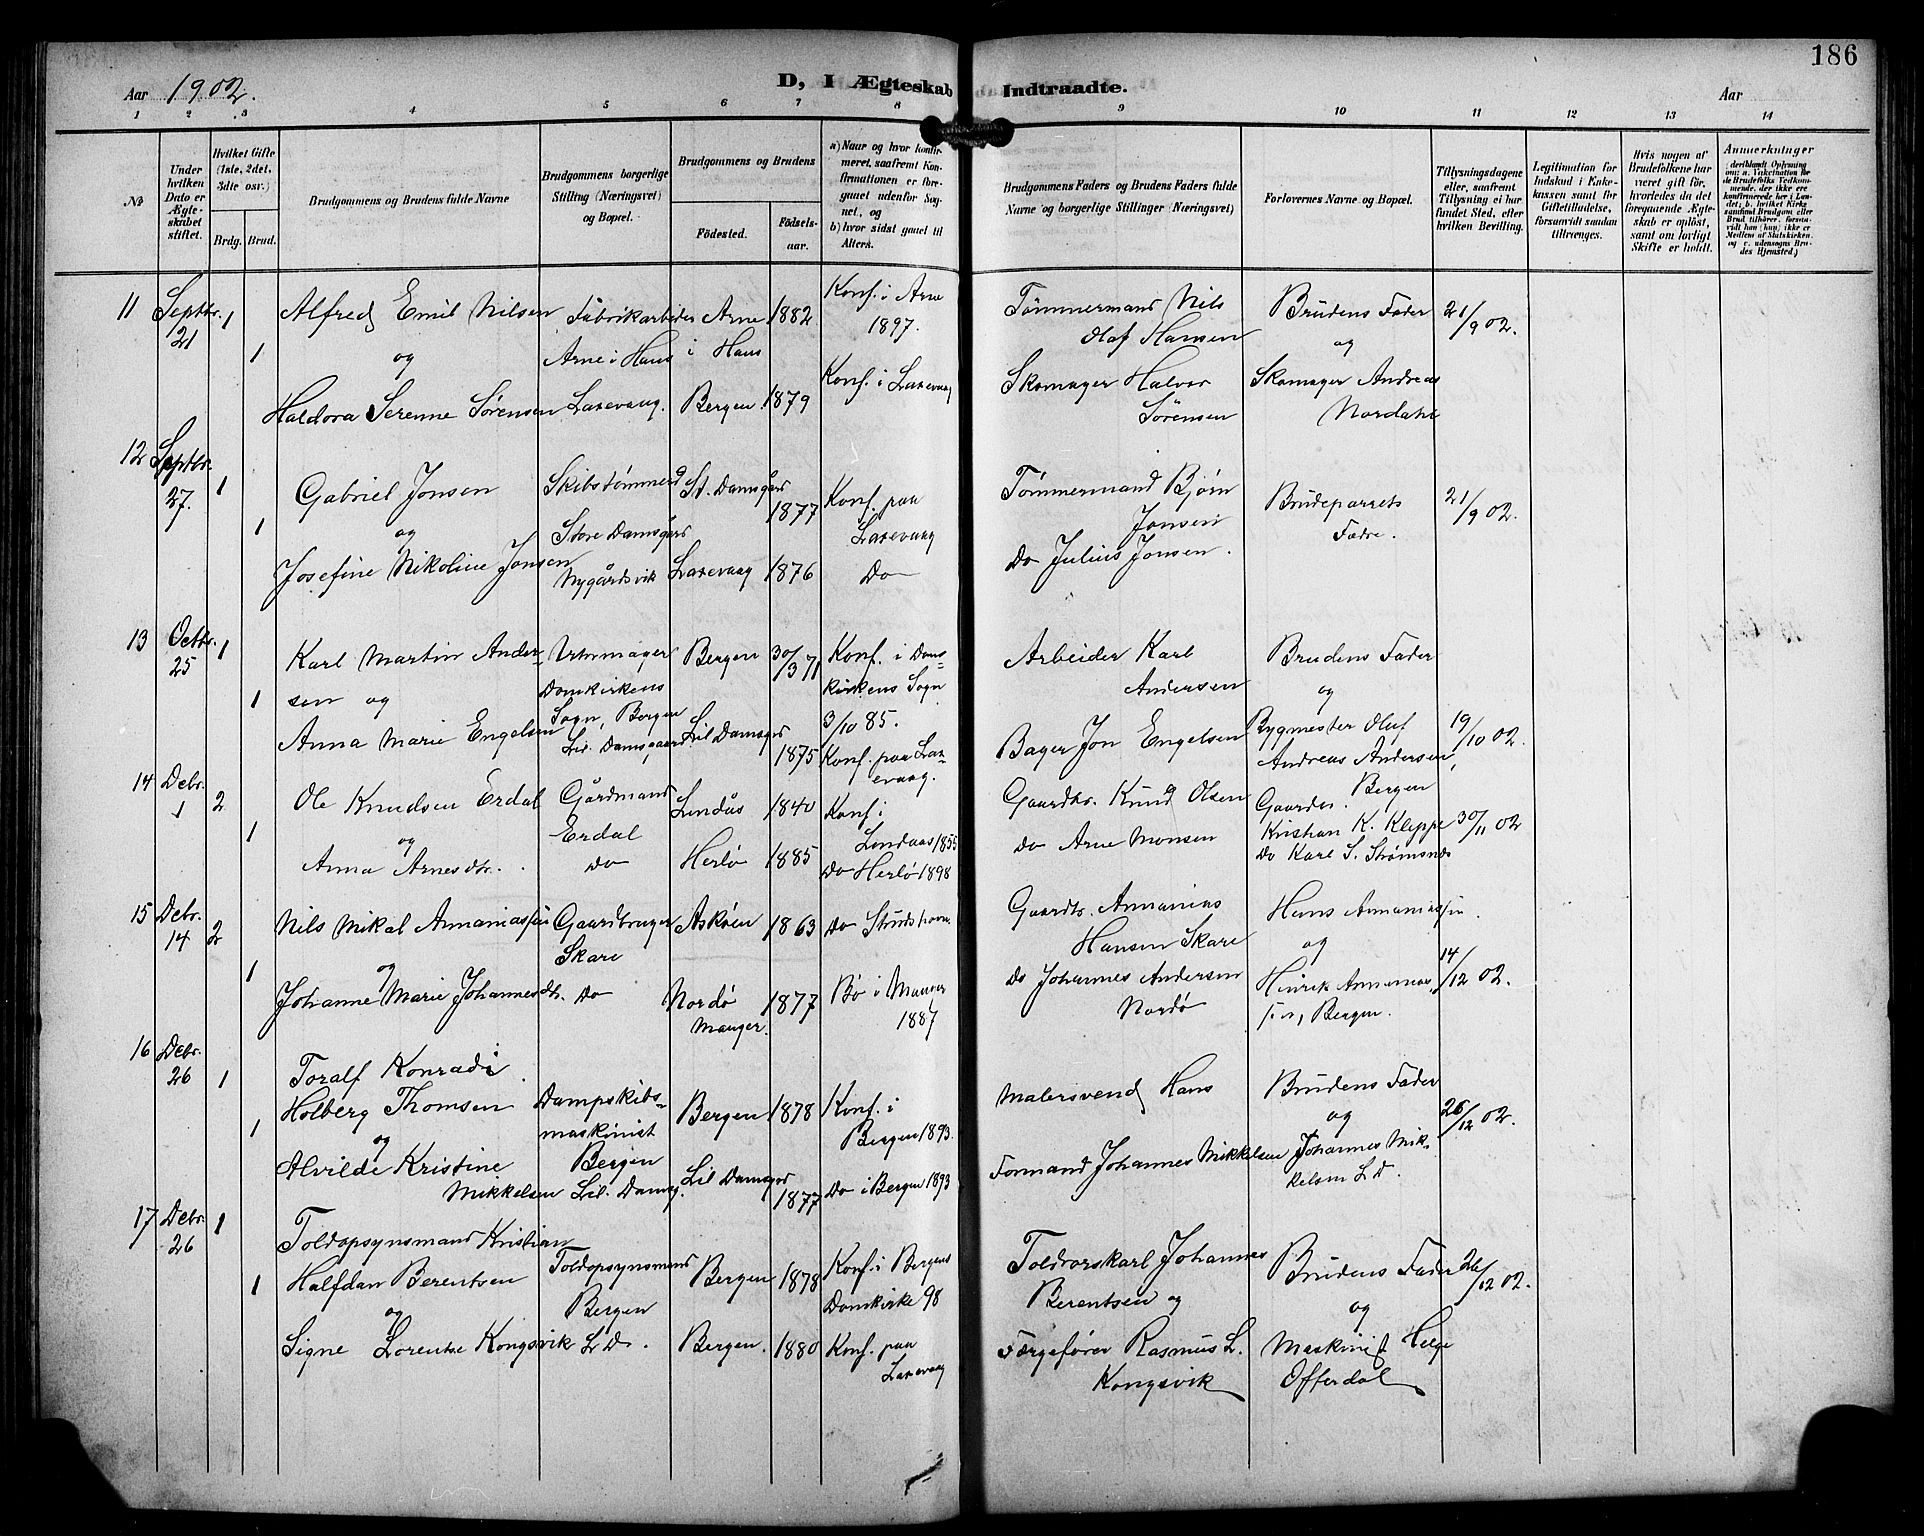 186
Aar 1902.
D, I Ægteskab Indtraadte.
Aar
1 2 3 4 5 6 7 8 9 10 11 12 13 14
No
Under hvilken Dato er Ægteskabet stiftet.
Hvilket Gifte (1ste, 2det, 3die osv.)
Brdg. Brud.
Brudgommens og Brudens fulde Navne
Brudgommens borgerlige Stilling (Næringsvei) og Bopæl.
Brudgommens og Brudens
Fødested.
Fødselsaar.
a) Naar og hvor konfirmeret, saafremt Konfirmationen er foregaaet udenfor Sognet, og
b) hvor sidst gaaet til Alters.
Brudgommens Faders og Brudens Faders fulde Navne og borgerlige Stillinger (Næringsvei)
Forlovernes Navne og Bopæl.
Tillysningsdagene eller, saafremt Tillysning ei har fundet Sted, efter hvilken Bevilling.
Legitimation for Indskud i Enkekassen samt for Giftetilladelse, forsaavidt saadan tiltrænges.
Hvis nogen af Brudefolkene har været gift før, hvorledes da det foregaaende Ægteskab er opløst, samt om lovligt Skifte er holdt.
Anmerkninger (deriblandt Oplysning om: a. Vakcination for de Brudefolks Vedkommende, der ikke ere konfirmerede her i Landet; b. hvilket Kirkesamfund Brudgom eller Brud tilhører, forsaavidt han (hun) ikke er Medlem af Statskirken, og c. udensogns Brudes Hjemsted.)
11 Septbr. 21 1 Alfred Emil Nilsen Fabrikarbeider Arne 1882 Konf. i Arne 1897. Tømmermand Nils Olaf Hansen Brudens Fader 21/9 02.
1 og Arne i Haus i Haus og
Haldora Serenne Sørensen Laxevaag. Bergen 1879 Konf. i Laxevaag Skomager Halvor Sørensen Skomager Andreas Nordahl
12 Septbr. 27. 1 Gabriel Jonsen Skibstømmermd St. Damsgård 1877 Konf. paa Laxevaag Tømmermand Bjørn Jonsen Brudeparrets Fædre. 21/9 02.
1 og Store Damsgård
Josefine Nikoline Jonsen Nygårdsvik Laxevaag 1876 Do Do Julius Jonsen.
13 Octbr. 25 1 Karl Martin Andersen og Urtemager Domkirkens Sogn, Bergen Bergen 30/3 71 Konf. i Domkirkens Sogn 3/10 85. Arbeider Karl Andersen Brudens Fader og
1 Anna Marie Engelsen Lil. Damsgaard Lil Damsgrd 1875 Konf. paa Laxevaag. Bager Jon Engelsen Bygmester Oluf Andreas Andersen, Bergen 19/10 02.
14 Debr. 1 2 Ole Knudsen Erdal Gårdmand Erdal Lindås 1840 Konf. i Lindaas 1855 Gaardbr. Knud Olsen Gaardbr. Kristian K. Kleppe 30/11 02
1 og
Anna Arnesdtr. Do Herlø 1885 Do Herlø 1898 Do Arne Monsen Do Karl S. Strømsnes
15 Debr. 14 2 Nils Mikal Annaniassen Gaardbruger Skare Askøen 1863 Do Strudshavn Gaardbr. Annanias Hansen Skare Hans Annaniassen.
1 og og
Johanne Marie Johannesdtr. Do Nordø Manger. 1877 Bø i Manger 1887 Do Johannes Andersen Nordø Hinrik Annaniassen, Bergen. 14/12 02.
16 Debr. 26 1 Toralf Konradi Holberg Thomsen Dampskibsmaskinist Bergen Bergen 1878 Konf. i Bergen 1893. Malersvend Hans Brudens Fader
1 og og 26/12 02.
Alvilde Kristine Mikkelsen Lil. Damsg. Lil Damsgrd 1877 Do i Bergen 1893 Formand Johannes Mikkelsen Johannes Mikkelsen L D.
17 Debr. 26 1 Toldopsynsmand Kristian Halfdan Berentsen Toldopsynsmand Bergen Bergen 1878 Konf. i Bergens Domkirke 98 Toldrorskarl Johannes Berentsen og Brudens Fader 26/12 02.
1 og og
Signe Lorentse Kongsvik L D. Bergen. 1880 Konf. paa Laxevaag Færgefører Rasmus L. Kongsvik Maskinist Helge Offerdal